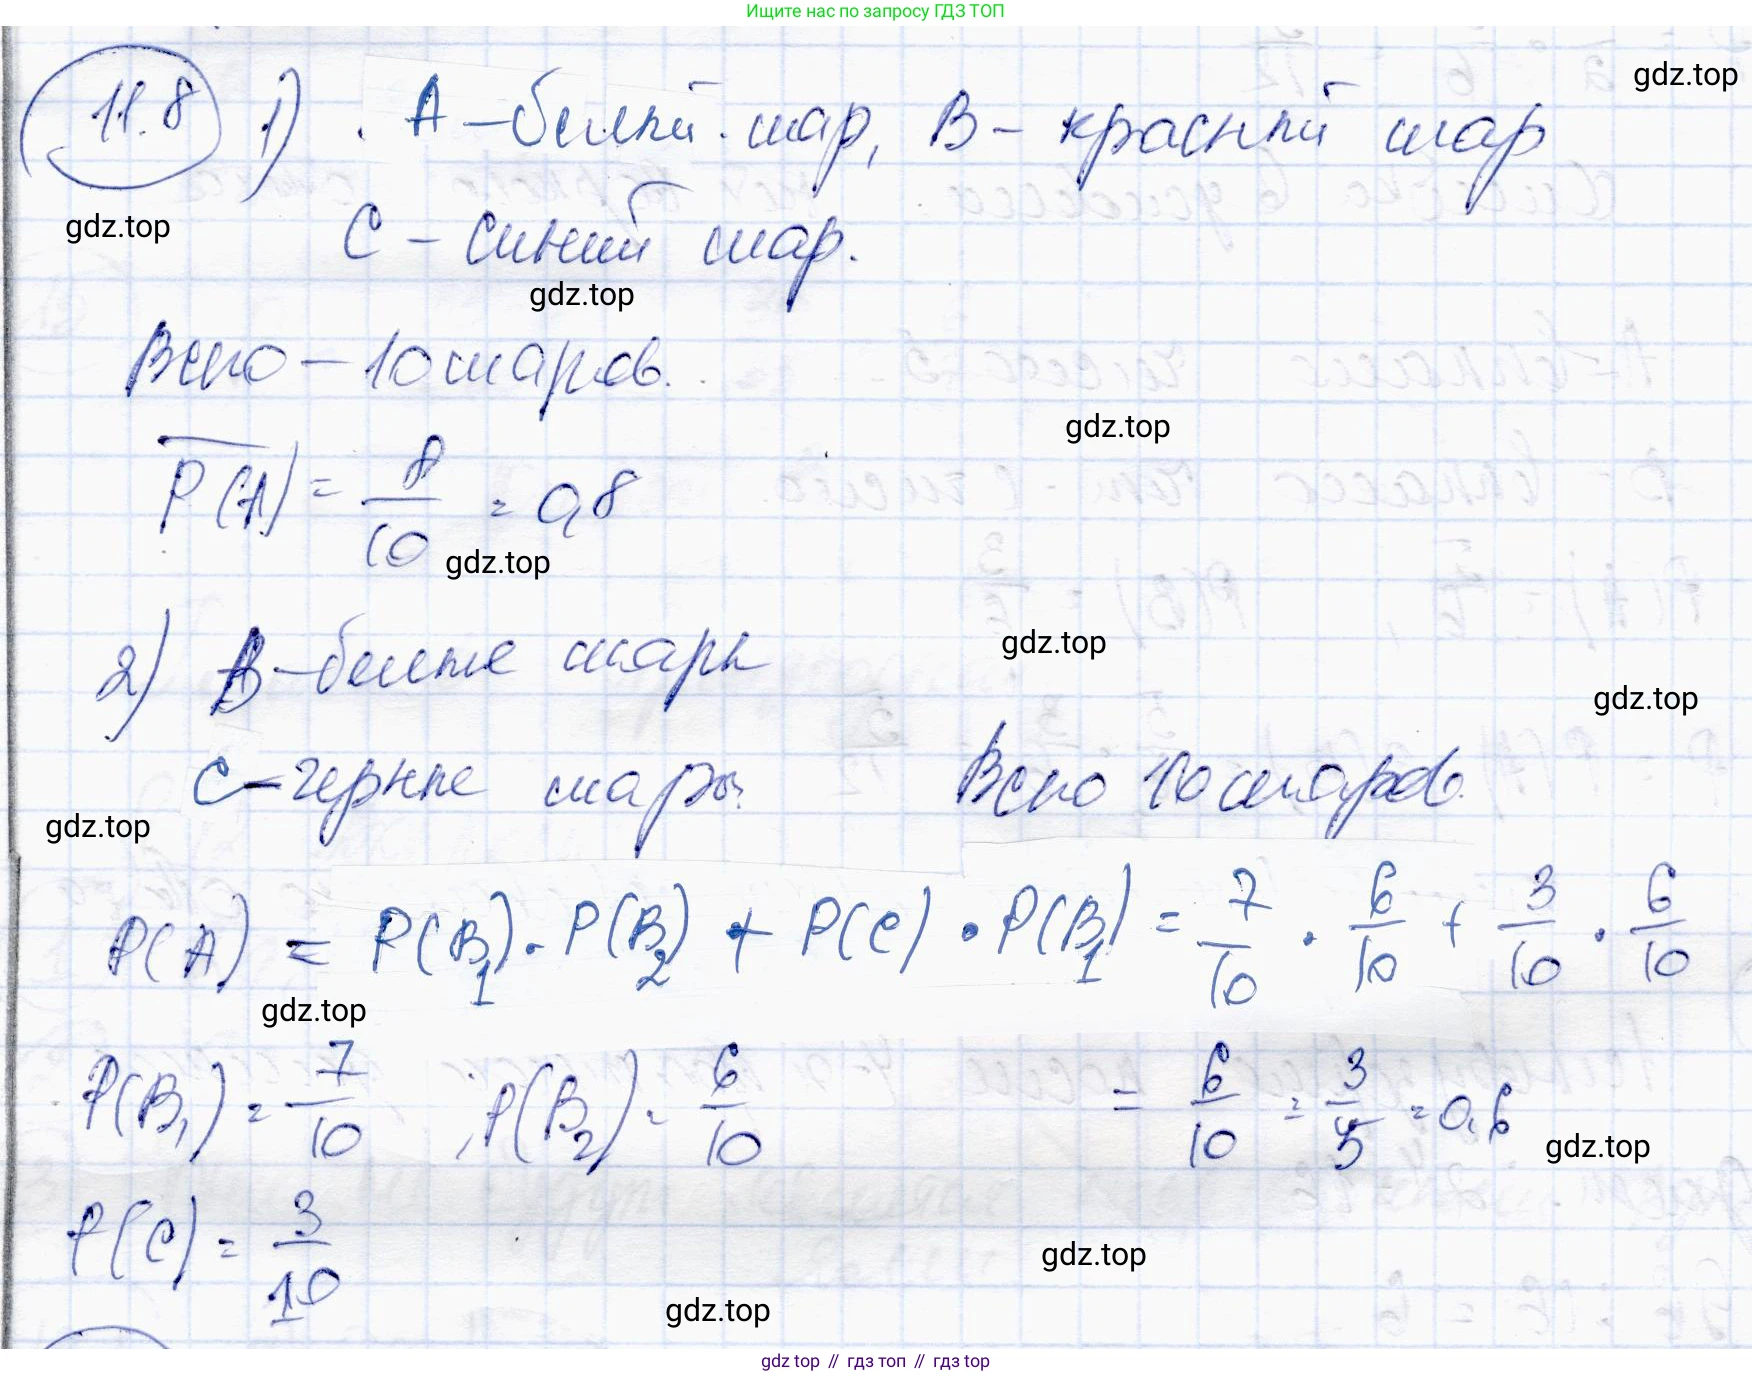 Ищите нас по запросу ГДЗ ТОП
11.8 1) А – белый шар, В – красный шар
gdz.top
С – синий шар.
gdz.top
gdz.top
Всего – 10 шаров.
gdz.top
P(A) = 8/10 = 0,8
gdz.top
2) В – белые шары
gdz.top
gdz.top
С – черные шары. Всего 10 шаров.
gdz.top
P(A) = P(B₁) · P(B₂) + P(C) · P(B₁) = 7/10 · 6/10 + 3/10 · 6/10
gdz.top
P(B₁) = 7/10 ; P(B₂) = 6/10 = 6/10 = 3/5 = 0,6
gdz.top
P(C) = 3/10
gdz.top
gdz.top
gdz top // гдз топ // гдз top